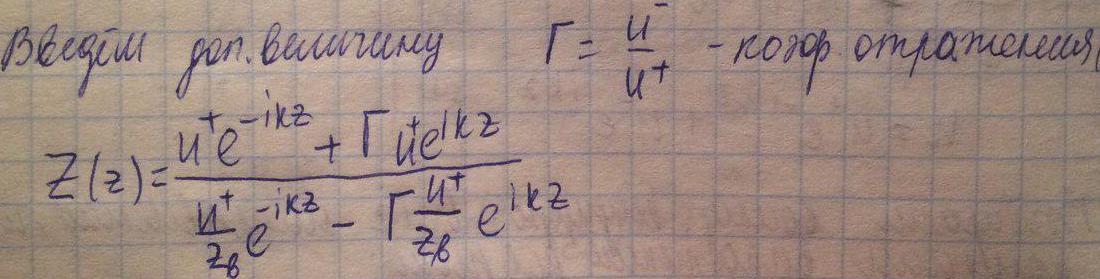 Введём доп. величину Γ = u⁻/u⁺ - коэф. отражения
Z(z) = (u⁺e^{-ikz} + Γu⁺e^{ikz}) / (u⁺/z_в e^{-ikz} - Γ u⁺/z_в e^{ikz})